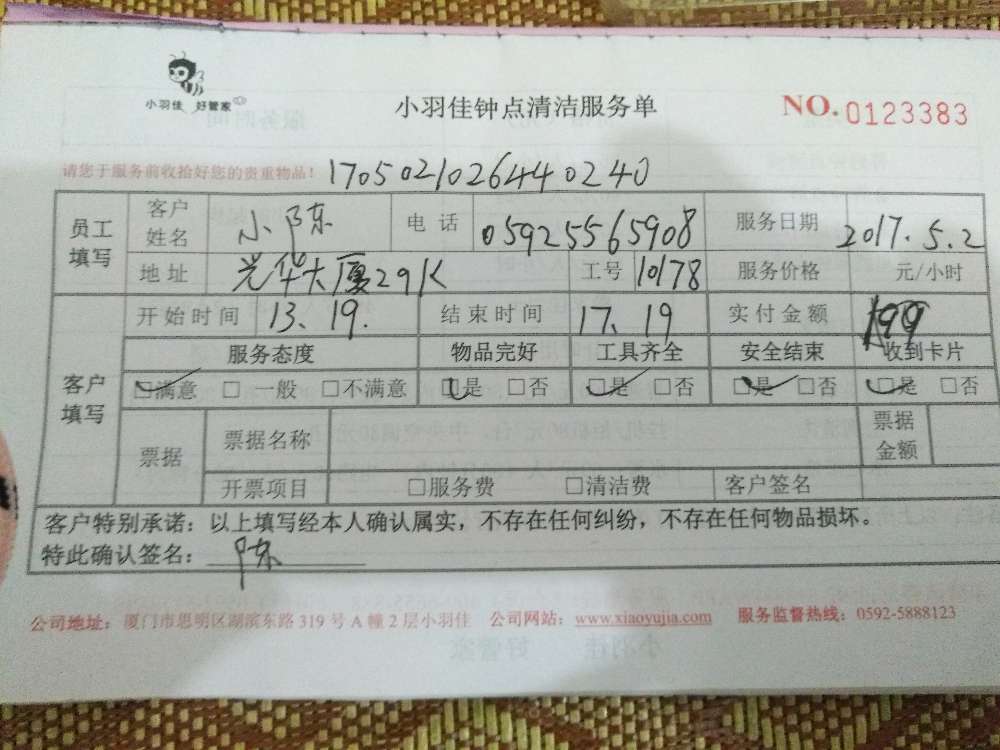 小羽佳 好管家
小羽佳钟点清洁服务单
NO.0123383
请您于服务前收拾好您的贵重物品! 170502102644 0240
员工填写 客户姓名 小陈 电话 05925565908 服务日期 2017.5.2
地址 光华大厦29K 工号 10178 服务价格 元/小时
客户填写 开始时间 13、19. 结束时间 17、19 实付金额 199
服务态度 物品完好 工具齐全 安全结束 收到卡片
□满意 □ 一般 □不满意 □是 □否 □是 □否 □是 □否 □是 □否
票据 票据名称 票据金额
开票项目 □服务费 □清洁费 客户签名
客户特别承诺:以上填写经本人确认属实,不存在任何纠纷,不存在任何物品损坏。
特此确认签名: 陈
公司地址:厦门市思明区湖滨东路 319 号 A 幢 2 层小羽佳 公司网站:www.xiaoyujia.com 服务监督热线:0592-5888123